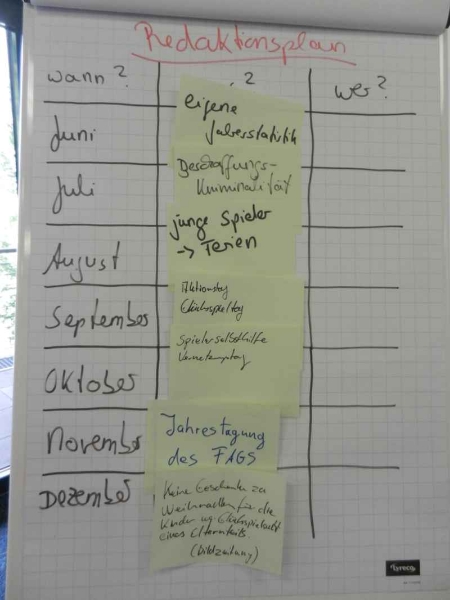 Redaktionsplan
wann?
?
wer?
Juni
eigene
Jahresstatistik
Juli
Beschaffungs-
Kriminalität
August
junge Spieler
→ Ferien
September
Aktionstag
Glücksspielsucht
Oktober
Spielerselbsthilfe
November
Jahrestagung
des FAGS
Dezember
Keine Geschenke zu
Weihnachten für die
Kinder wg. Glücksspielsucht
eines Elternteils
(Bildzeitung)